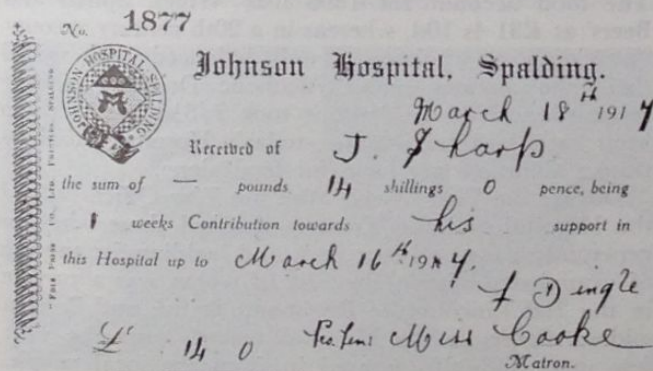 No. 1877
JOHNSON HOSPITAL SPALDING
Johnson Hospital, Spalding.
March 18th 1917
Received of J. Sharp
the sum of — pounds 14 shillings 0 pence, being
weeks Contribution towards his support in
this Hospital up to March 16th 1917.
Dingle
£ 14 0 Miss Cooke
Matron.